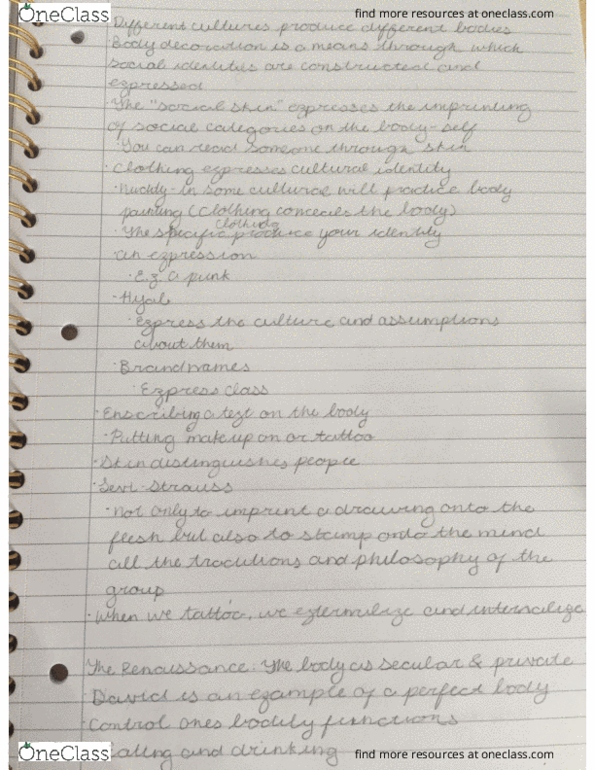 OneClass
find more resources at oneclass.com
Different cultures produce different bodies
Body decoration is a means through which
social identities are constructed and
expressed
The "social skin" expresses the imprinting
of social categories on the body-self
You can read someone through skin
Clothing expresses cultural identity
Nuddy - In some cultural will practice body
painting (clothing conceals the body)
clothing
The specific produce your identity
an expression
E.g. a punk
Hijab
Express the culture and assumptions
about them
Brandnames
Express class
Enscribing a text on the body
Putting makeup on or tattoo
Skin distinguishes people
Levi-Strauss
not only to imprint a drawing onto the
flesh but also to stamp onto the mind
all the traditions and philosophy of the
group
When we tattoo, we externalize and internalize
The Renaissance: The body as secular & private
David is an example of a perfect body
Control ones bodily functions
Eating and drinking
OneClass
find more resources at oneclass.com